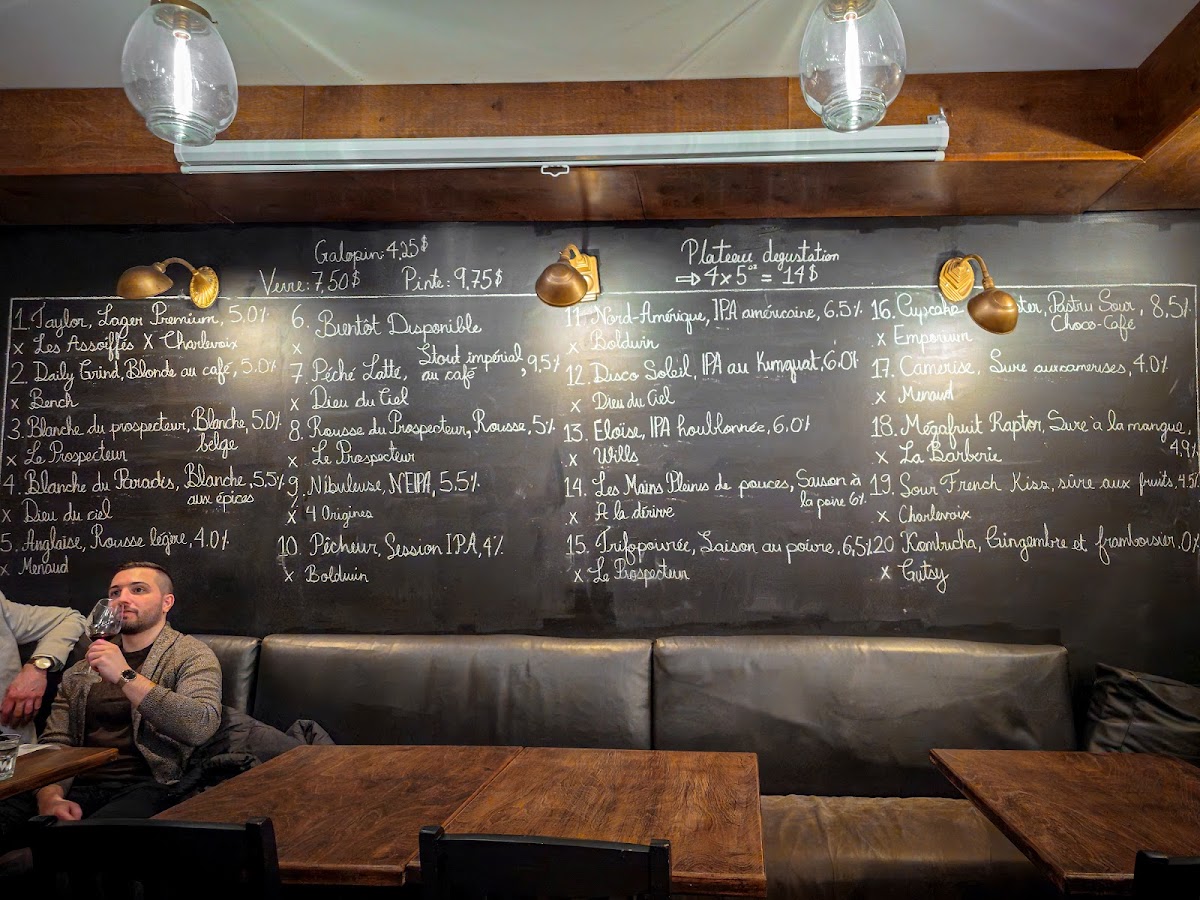 Galopin: 4,25$
Verre: 7,50$ Pinte: 9,75$
Plateau degustation
⇨ 4 x 5oz = 14$
1. Taylor, Lager Premium, 5.0%
x Les Assoiffés X Charlevoix
2. Daily Grind, Blonde au café, 5.0%
x Bench
3. Blanche du prospecteur, Blanche, 5.0%
belge
x Le Prospecteur
4. Blanche du Paradis, Blanche, 5.5%
aux épices
x Dieu du ciel
5. Anglaise, Rousse légère, 4.0%
x Menaud
6. Bientôt Disponible
x
7. Péché Latté, Stout impérial, 9,5%
au café
x Dieu du Ciel
8. Rousse du Prospecteur, Rousse, 5%
x Le Prospecteur
9. Nébuleuse, NEIPA, 5.5%
x 4 Origines
10. Pêcheur, Session IPA, 4%
x Boldwin
11. Nord-Amérique, IPA américaine, 6.5%
x Boldwin
12. Disco Soleil, IPA au Kumquat, 6.0%
x Dieu du Ciel
13. Eloïse, IPA houblonnée, 6.0%
x Wills
14. Les Mains Pleines de pouces, Saison à
la poire 6%
x A la dérive
15. Trifopoivrée, Saison au poivre, 6,5%
x Le Prospecteur
16. Cupcake Pastry Sour, 8,5%
Choco-Café
x Emporium
17. Camerise, Sure aux camerises, 4.0%
x Menaud
18. Mégafruit Raptor, Sure à la mangue,
4,9%
x La Barberie
19. Sour French Kiss, sûre aux fruits, 4.5%
x Charlevoix
20 Kombucha, Gingembre et framboisier. 0%
x Gutsy